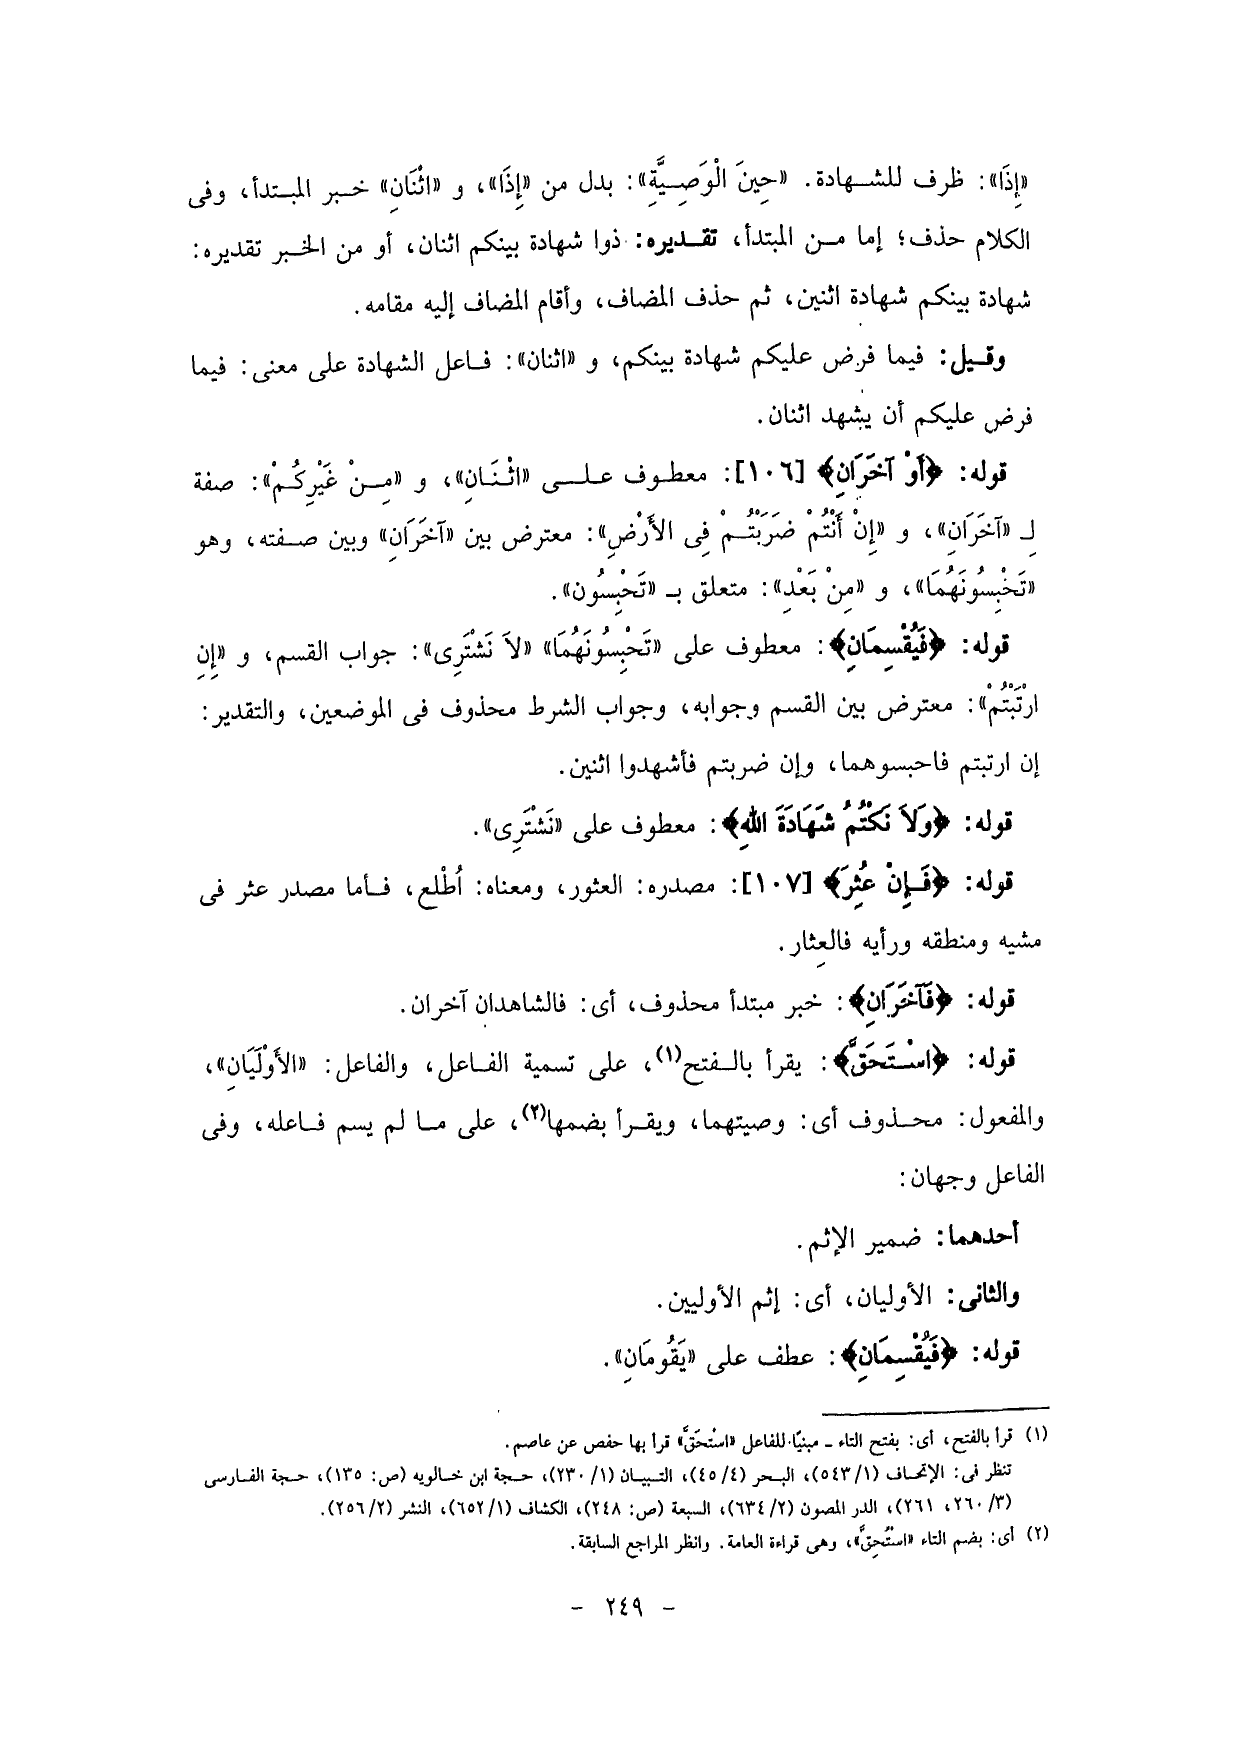 «إِذَا»: ظرف للشهادة. «حِينَ الْوَصِيَّةِ»: بدل من «إِذَا»، و «اثْنَانِ» خبر المبتدأ، وفى
الكلام حذف؛ إما من المبتدأ، تقديره: ذوا شهادة بينكم اثنان، أو من الخبر تقديره:
شهادة بينكم شهادة اثنين، ثم حذف المضاف، وأقام المضاف إليه مقامه.
وقيل: فيما فرض عليكم شهادة بينكم، و «اثنان»: فاعل الشهادة على معنى: فيما
فرض عليكم أن يشهد اثنان.
قوله: ﴿أَوْ آخَرَانِ﴾ [١٠٦]: معطوف على «اثْنَانِ»، و «مِنْ غَيْرِكُمْ»: صفة
لِـ «آخَرَانِ»، و «إِنْ أَنْتُمْ ضَرَبْتُمْ فِى الأَرْضِ»: معترض بين «آخَرَانِ» وبين صفته، وهو
«تَحْبِسُونَهُمَا»، و «مِنْ بَعْدِ»: متعلق بـ «تَحْبِسُون».
قوله: ﴿فَيُقْسِمَانِ﴾: معطوف على «تَحْبِسُونَهُمَا» «لاَ نَشْتَرِى»: جواب القسم، و «إِنِ
ارْتَبْتُمْ»: معترض بين القسم وجوابه، وجواب الشرط محذوف فى الموضعين، والتقدير:
إن ارتبتم فاحبسوهما، وإن ضربتم فأشهدوا اثنين.
قوله: ﴿وَلاَ نَكْتُمُ شَهَادَةَ اللهِ﴾: معطوف على «نَشْتَرِى».
قوله: ﴿فَإِنْ عُثِرَ﴾ [١٠٧]: مصدره: العثور، ومعناه: أُطْلع، فأما مصدر عثر فى
مشيه ومنطقه ورأيه فالعِثار.
قوله: ﴿فَآخَرَانِ﴾: خبر مبتدأ محذوف، أى: فالشاهدان آخران.
قوله: ﴿اسْتَحَقَّ﴾: يقرأ بالفتح(١)، على تسمية الفاعل، والفاعل: «الأَوْلَيَانِ»،
والمفعول: محذوف أى: وصيتهما، ويقرأ بضمها(٢)، على ما لم يسم فاعله، وفى
الفاعل وجهان:
أحدهما: ضمير الإثم.
والثانى: الأوليان، أى: إثم الأوليين.
قوله: ﴿فَيُقْسِمَانِ﴾: عطف على «يَقُومَانِ».
(١) قرأ بالفتح، أى: بفتح التاء ـ مبنيًا للفاعل «اسْتَحَقَّ» قرأ بها حفص عن عاصم.
تنظر فى: الإتحاف (١/ ٥٤٣)، البحر (٤/ ٤٥)، التبيان (١/ ٢٣٠)، حجة ابن خالويه (ص: ١٣٥)، حجة الفارسى
(٣/ ٢٦٠، ٢٦١)، الدر المصون (٢/ ٦٣٤)، السبعة (ص: ٢٤٨)، الكشاف (١/ ٦٥٢)، النشر (٢/ ٢٥٦).
(٢) أى: بضم التاء «اسْتُحِقَّ»، وهى قراءة العامة. وانظر المراجع السابقة.
- ٢٤٩ -